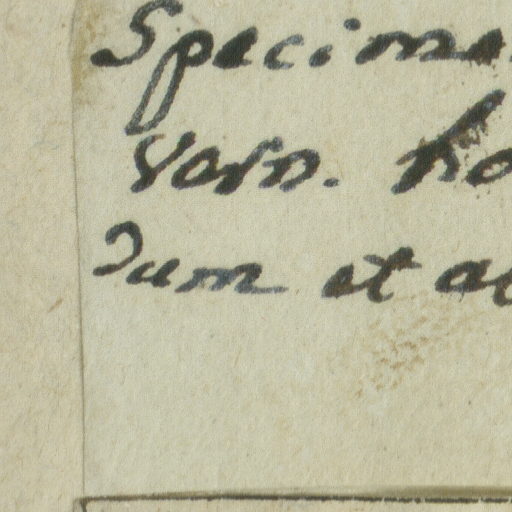 Specime
Varn. ho
dum et a